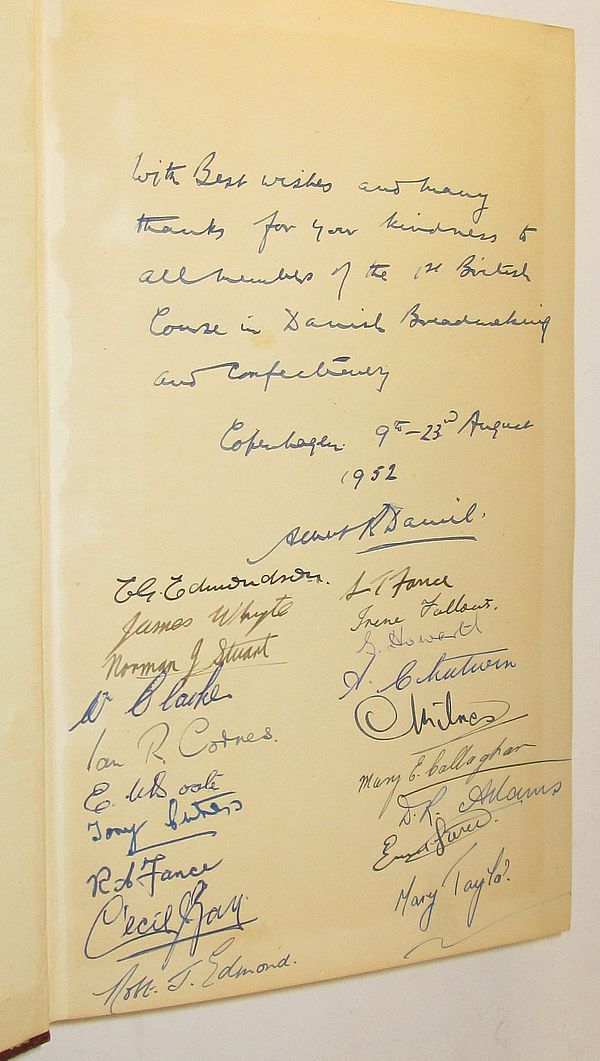 With Best wishes and many
thanks for your kindness to
all members of the 1st British
Course in Danish Breadmaking
and Confectionery
Copenhagen 9th – 23rd August
1952
Albert R Daniel.
E.G. Edmondson.
James Whyte
Norman J Stuart
W Clarke
Ian R. Cornes.
E.
Tony
R A Fance
Cecil Kay.
Robt. J. Edmond.
Fance
Irene Fallows.
Howarth
A. Chatwin
C Milnes
Mary E. Callaghan
D. R. Adams
Mary Taylor